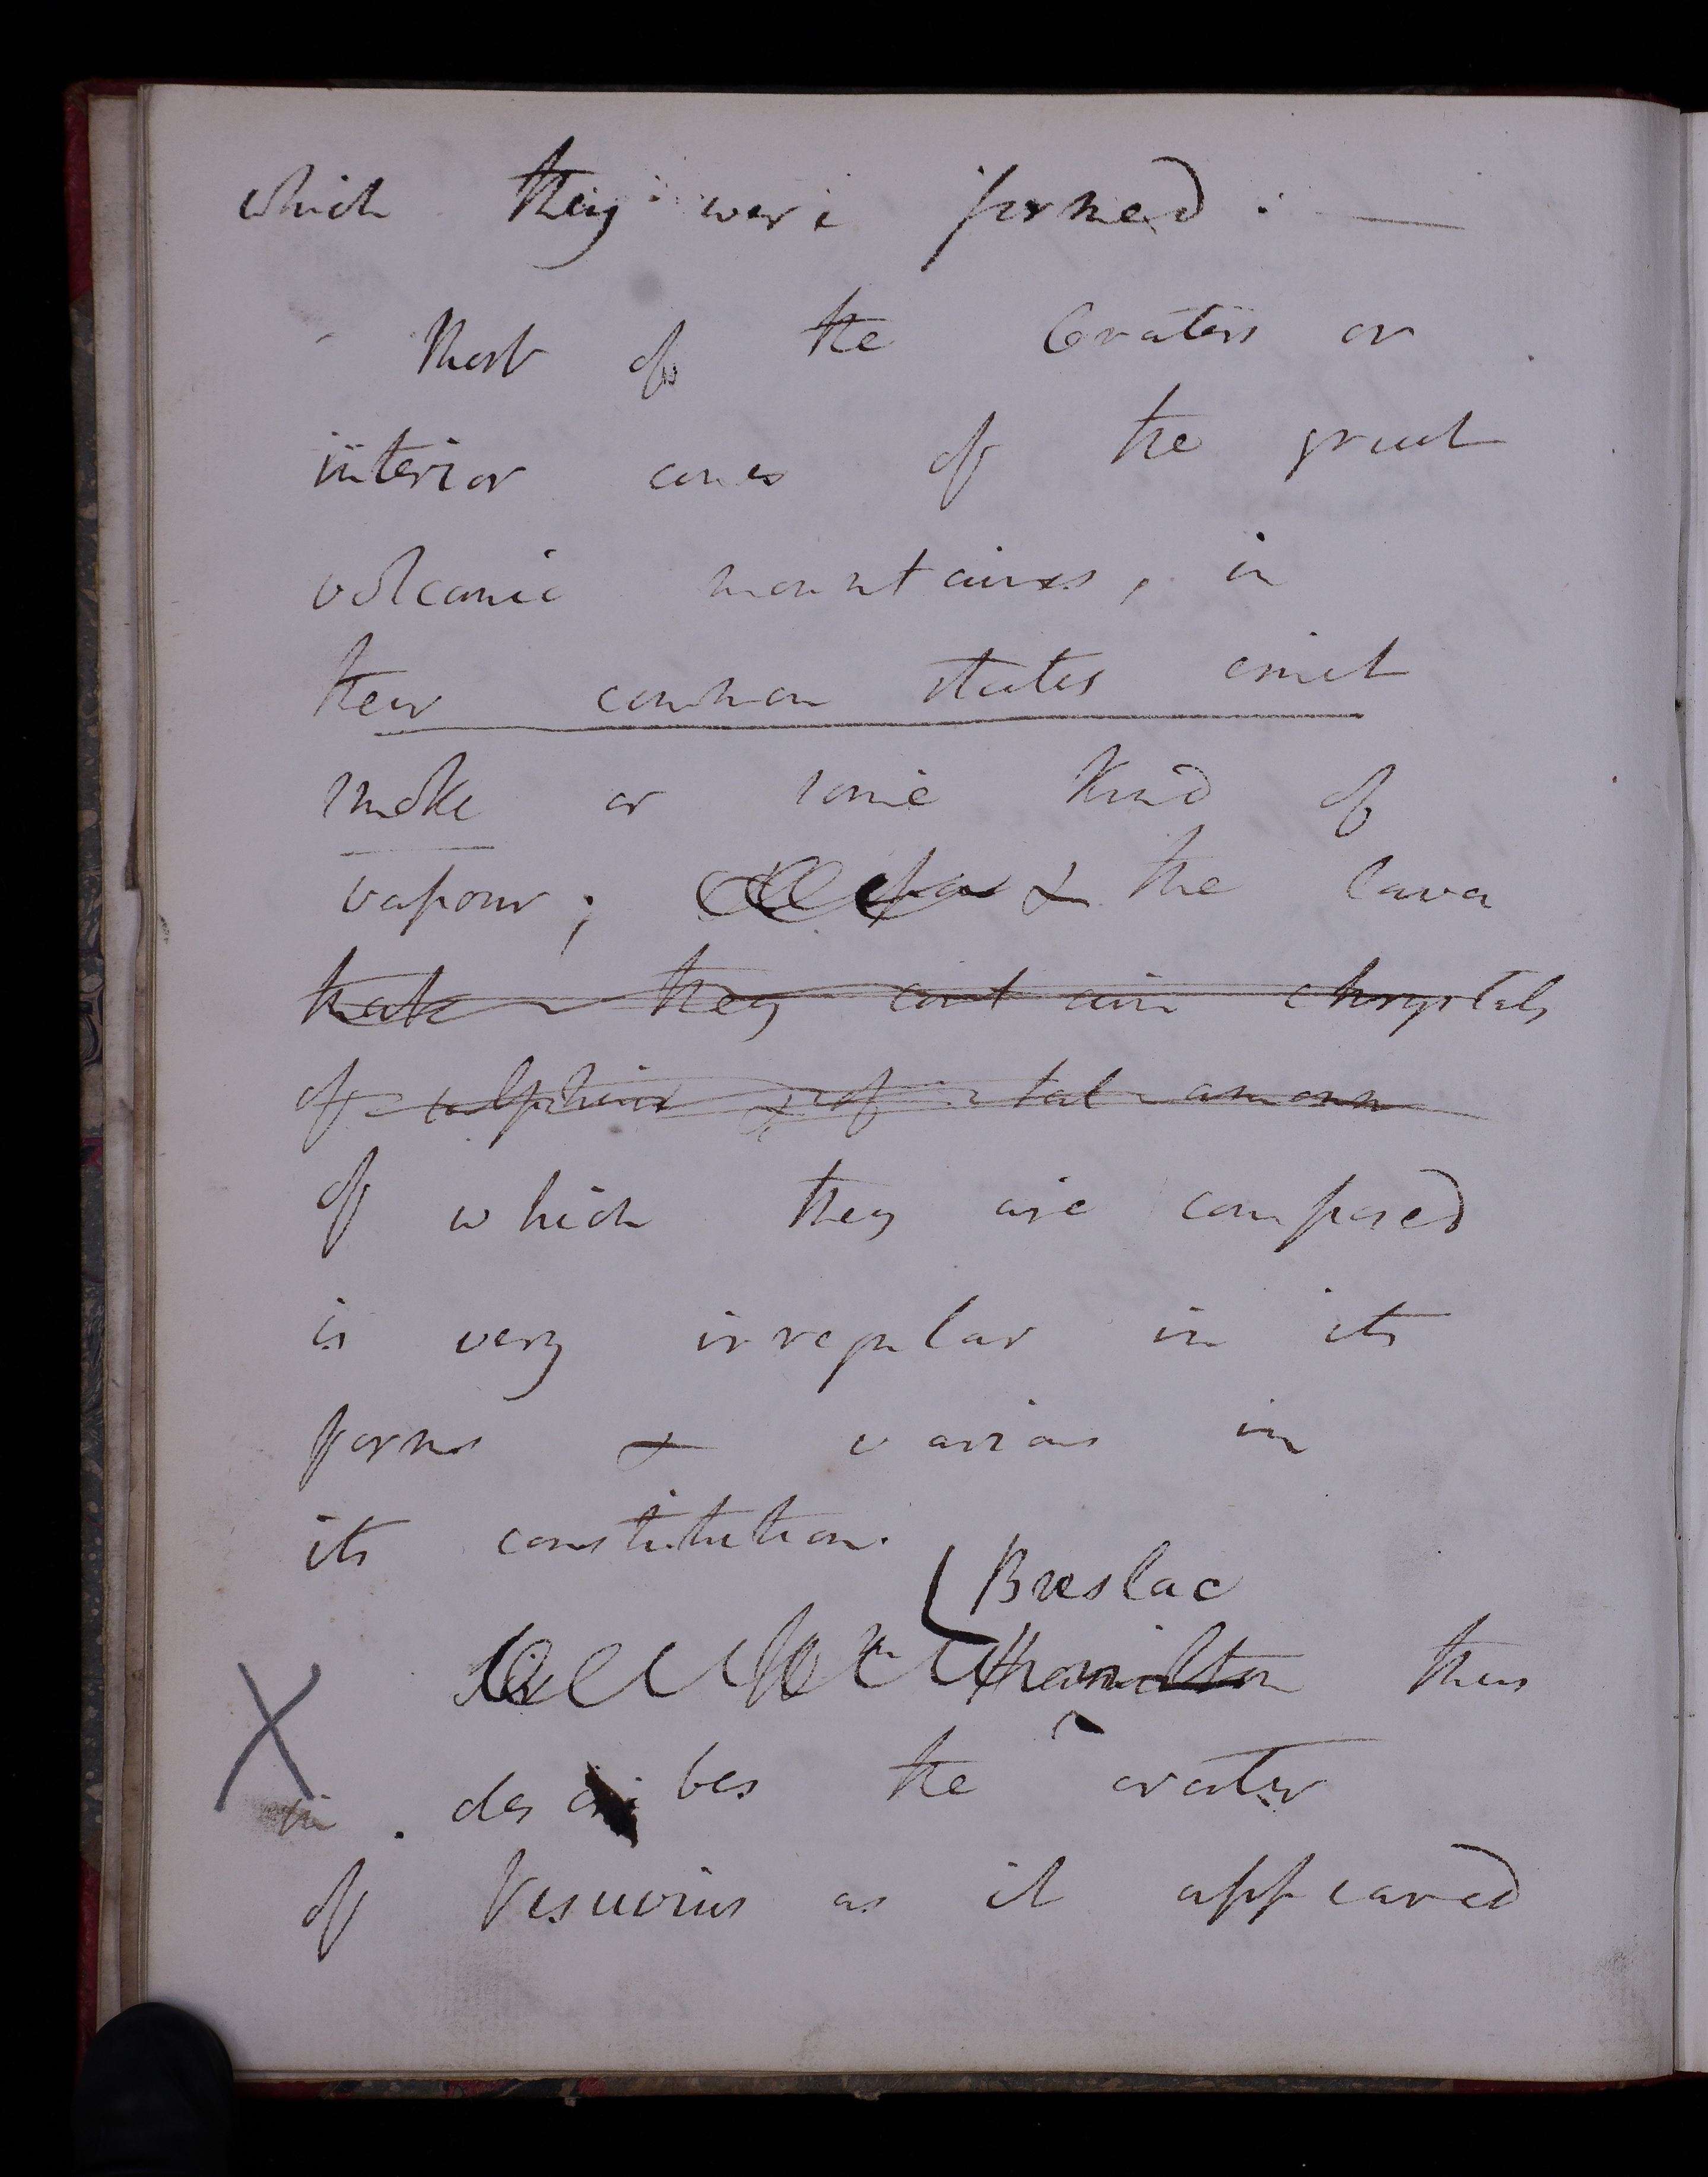 which they were formed. —
Most of the Craters or
interior cones of the great
volcanic mountains, in
their common states emit
smoke or some kind of
vapour; & the lava
they contain chrystals
of sulphur & of sal ammon
of which they are composed
is very irregular in its
forms & various in
its constitution.
Breslac
Hamilton thus
X
describes the crater
of Vesuvius as it appeared